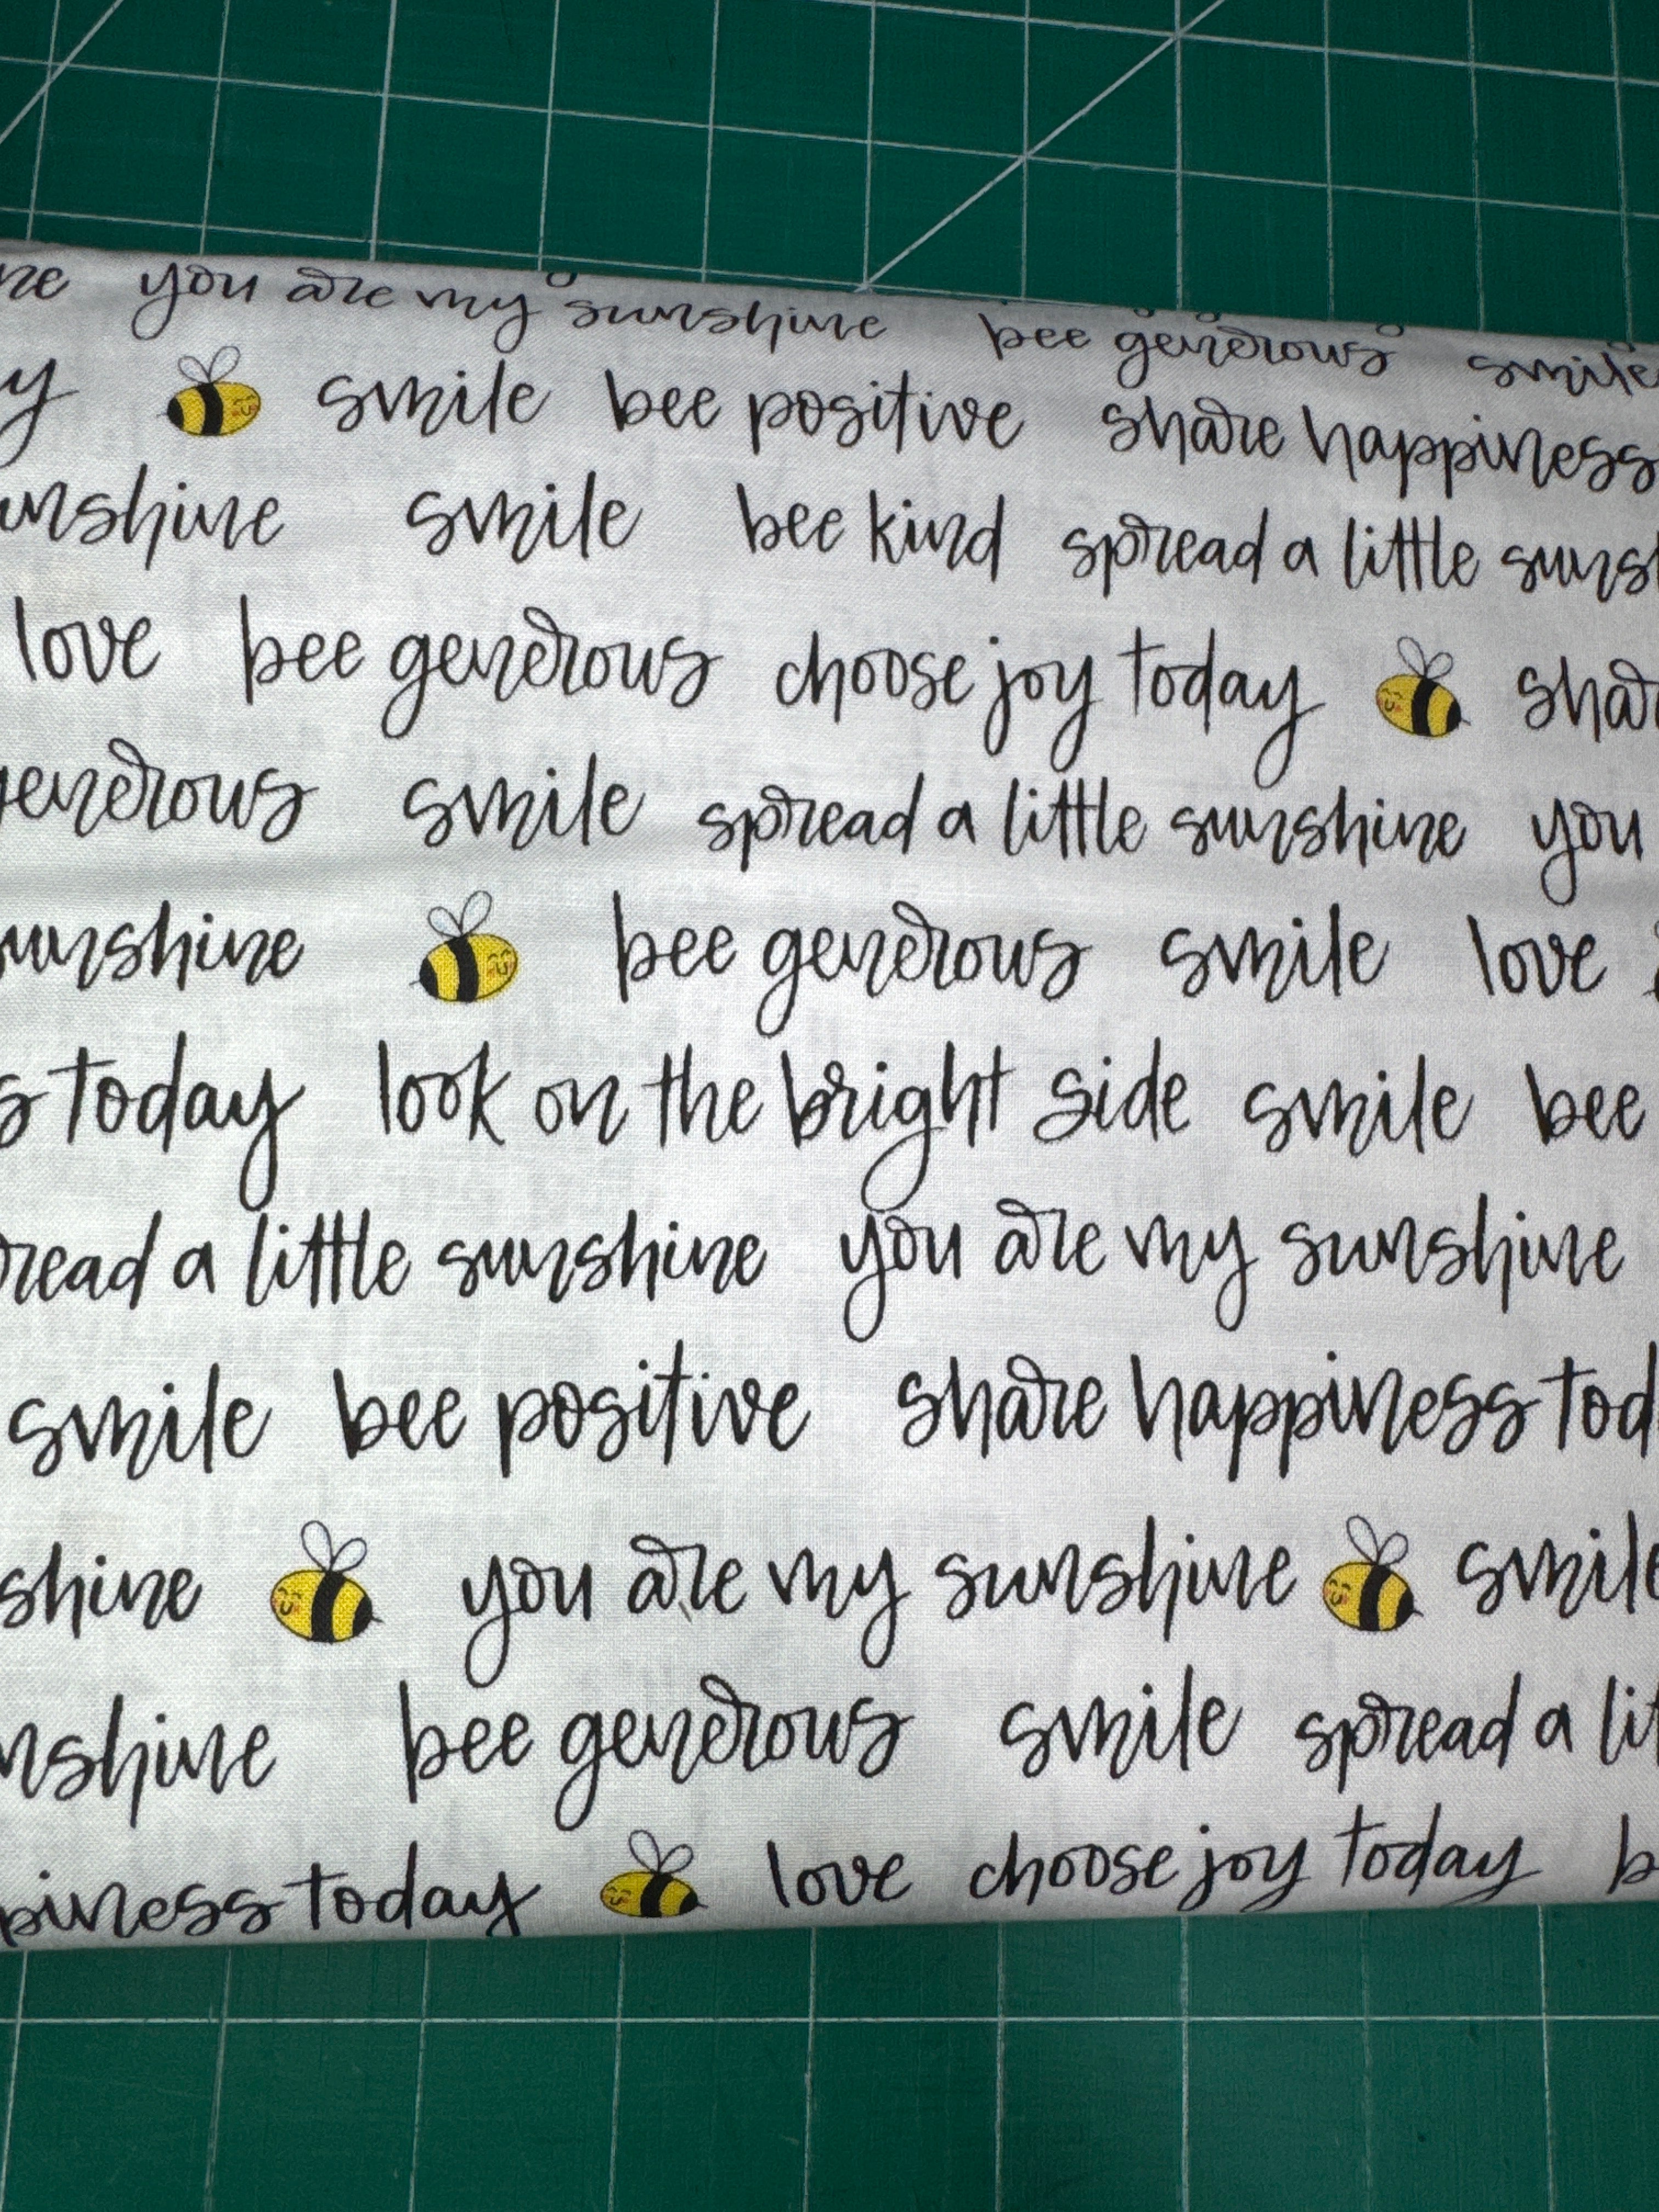 ne you are my sunshine bee generous smile
y smile bee positive share happiness
unshine smile bee kind spread a little suns
love bee generous choose joy today shar
generous smile spread a little sunshine you
sunshine bee generous smile love
s today look on the bright side smile bee
read a little sunshine you are my sunshine
smile bee positive share happiness tod
shine you are my sunshine smile
nshine bee generous smile spread a lit
piness today love choose joy today b